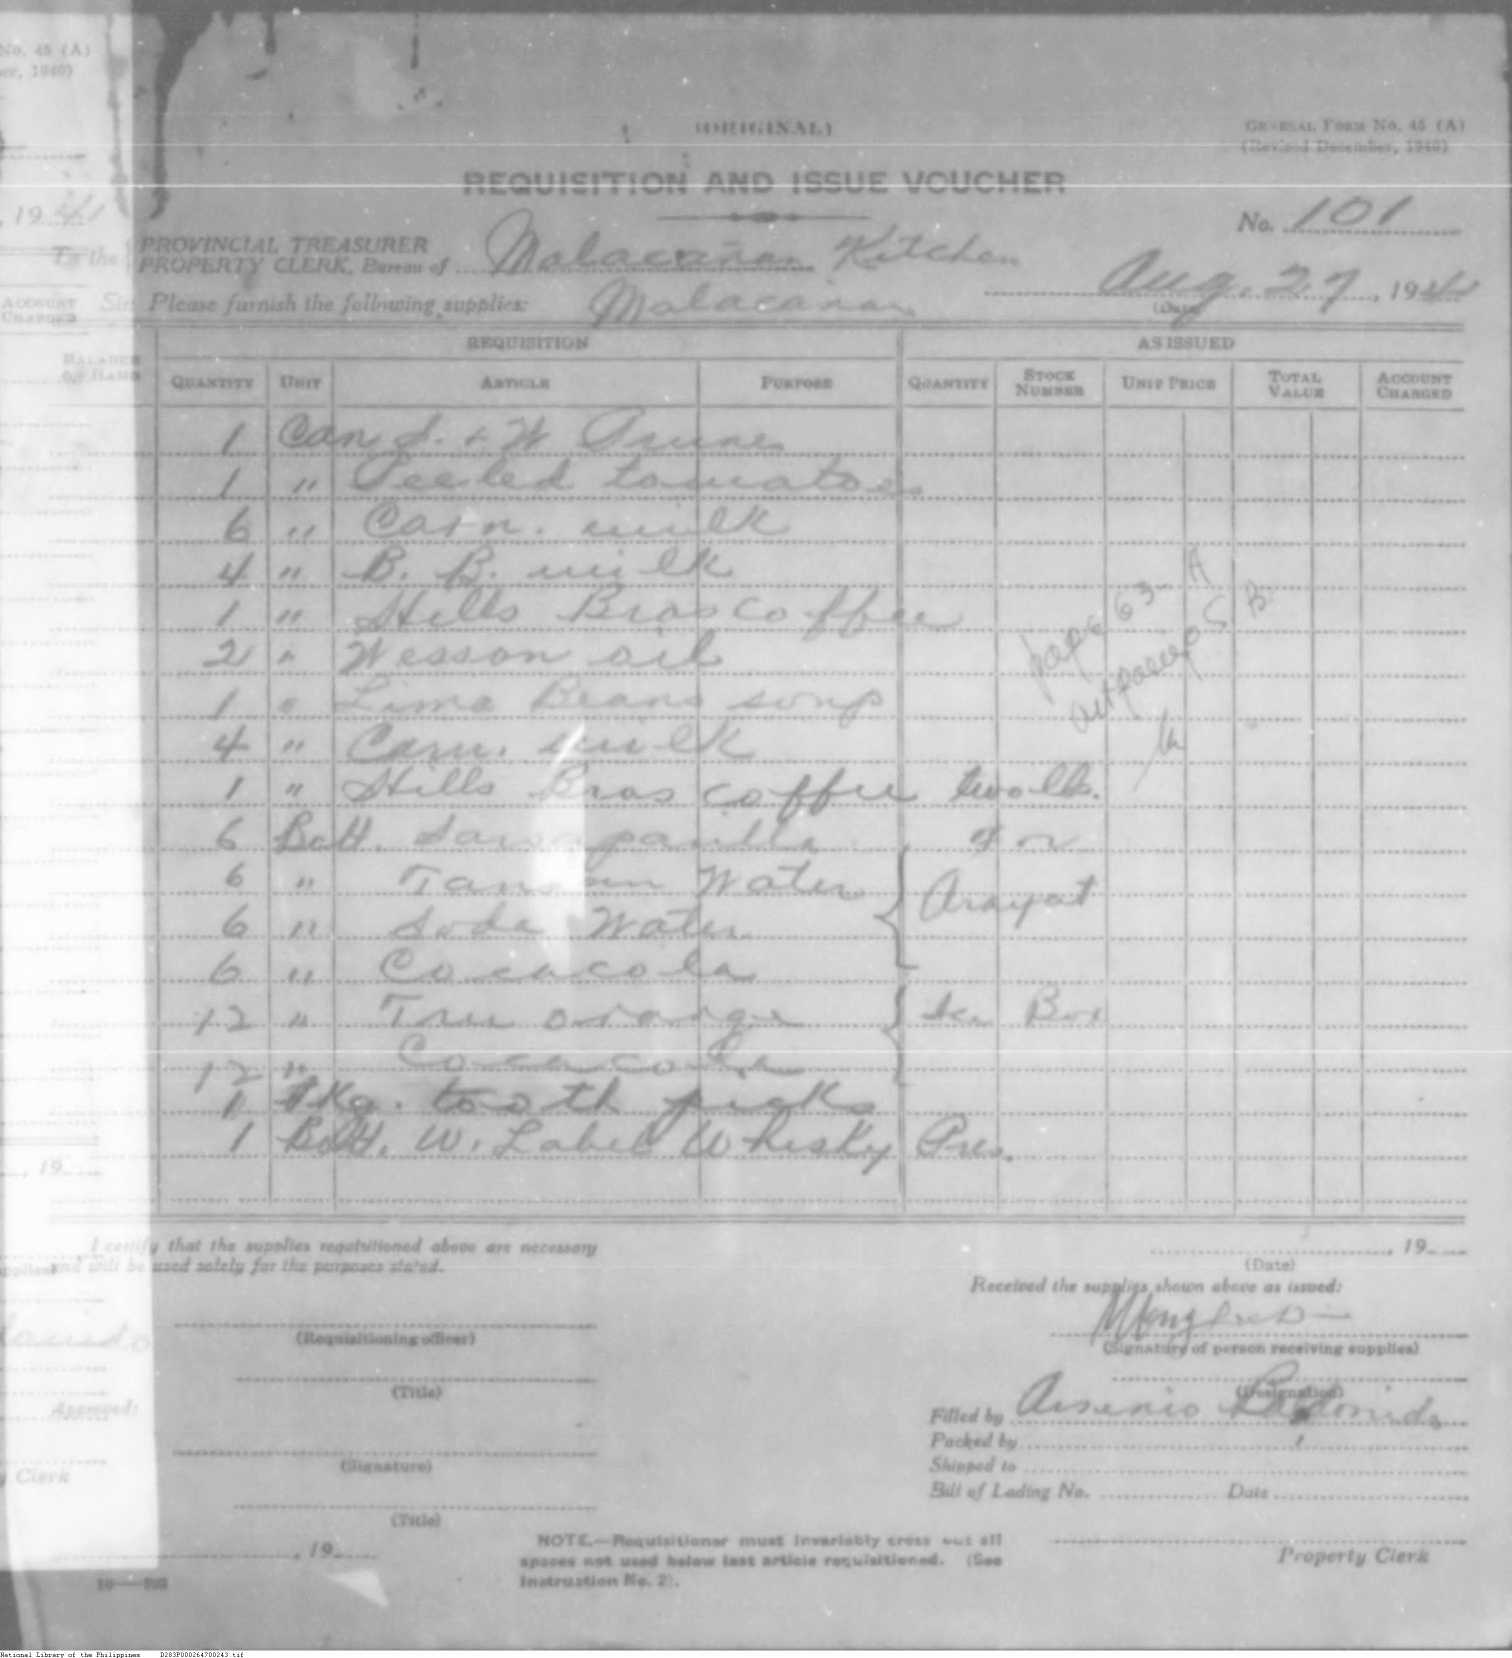 No. 45 (A)
1940)
(ORIGINAL)
GENERAL FORM No. 45 (A)
(Revised December, 1940)
REQUISITION AND ISSUE VOUCHER
No. 101
, 19
To the
PROVINCIAL TREASURER
PROPERTY CLERK, Bureau of Malacañan Kitchen
Aug. 27, 194
(Date)
ACCOUNT
CHARGED
Sir: Please furnish the following supplies: Malacañan
REQUISITION AS ISSUED
BALANCE
ON HAND
QUANTITY UNIT ARTICLE PURPOSE QUANTITY STOCK NUMBER UNIT PRICE TOTAL VALUE ACCOUNT CHARGED
1 Can S. & W Prunes
1 " Peeled tomatoes
6 " Carn. milk
4 " B. B. milk
1 " Hills Bros coffee
2 " Wesson oil
1 " Lima Beans soup
4 " Carn. milk
1 " Hills Bros coffee two lb.
6 Bott. Sarsaparilla for
6 " Tansan Water Arayat
6 " Soda Water
6 " Cocacola
12 " Tru orange Ice Box
12 " Cocacola
1 Pkg. tooth picks
1 Bott. W. Label Whisky Pres.
page 63- A
B
, 19
I certify that the supplies requisitioned above are necessary
and will be used solely for the purposes stated.
, 19
(Date)
Received the supplies shown above as issued:
(Requisitioning officer)
(Signature of person receiving supplies)
(Title)
(Designation)
Approved:
Filled by Arsenio
Packed by
(Signature)
Shipped to
y Clerk
Bill of Lading No. Date
(Title)
, 19
NOTE.—Requisitioner must invariably cross out all
spaces not used below last article requisitioned. (See
Instruction No. 2).
Property Clerk
National Library of the Philippines D283P000264700243.tif